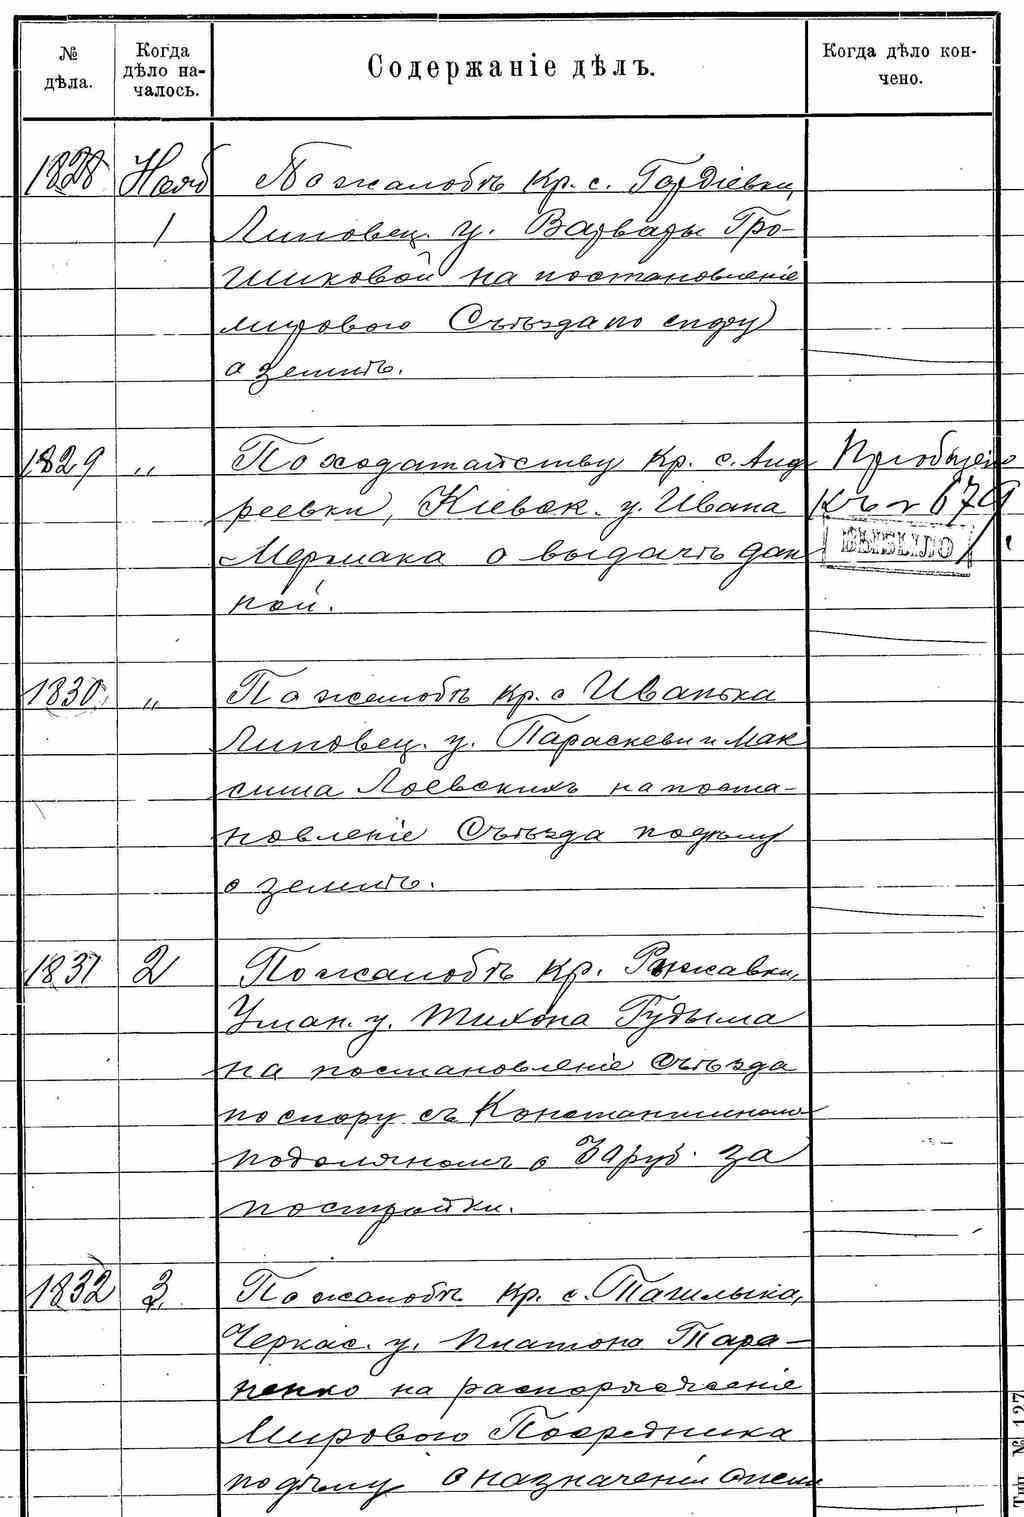 № дѣла.
Когда дѣло началось.
Содержаніе дѣлъ.
Когда дѣло кончено.
1828 Нояб 1
По жалобѣ кр. с. Гордіевки,
Липовец. у. Варвары Гро-
шиковой на постановленіе
мирового Съѣзда по спору
о землѣ.
1829 „
По ходатайству кр. с. Анд
реевки, Кіевск. у. Ивана
о выдачѣ дан
ной.
Пріобщено
къ № 679
ВЫБЫЛО
1830 „
По жалобѣ кр. с Иванька
Липовец. у. Параскеви и Мак
сима Лоевскихъ на поста-
новленіе Съѣзда по дѣлу
о землѣ.
1831 2
По жалобѣ кр. Рыжавки,
Уман. у. Тихона Гудыма
на постановленіе Съѣзда
по спору съ Константиномъ
Подоляномъ о руб. за
постройки.
1832 3
По жалобѣ кр. с. Ташлыка,
Черкас. у. Платона Тара-
ненко на распоряженіе
Мирового Посредника
по дѣлу о назначеніи опеки
Тип. № 127